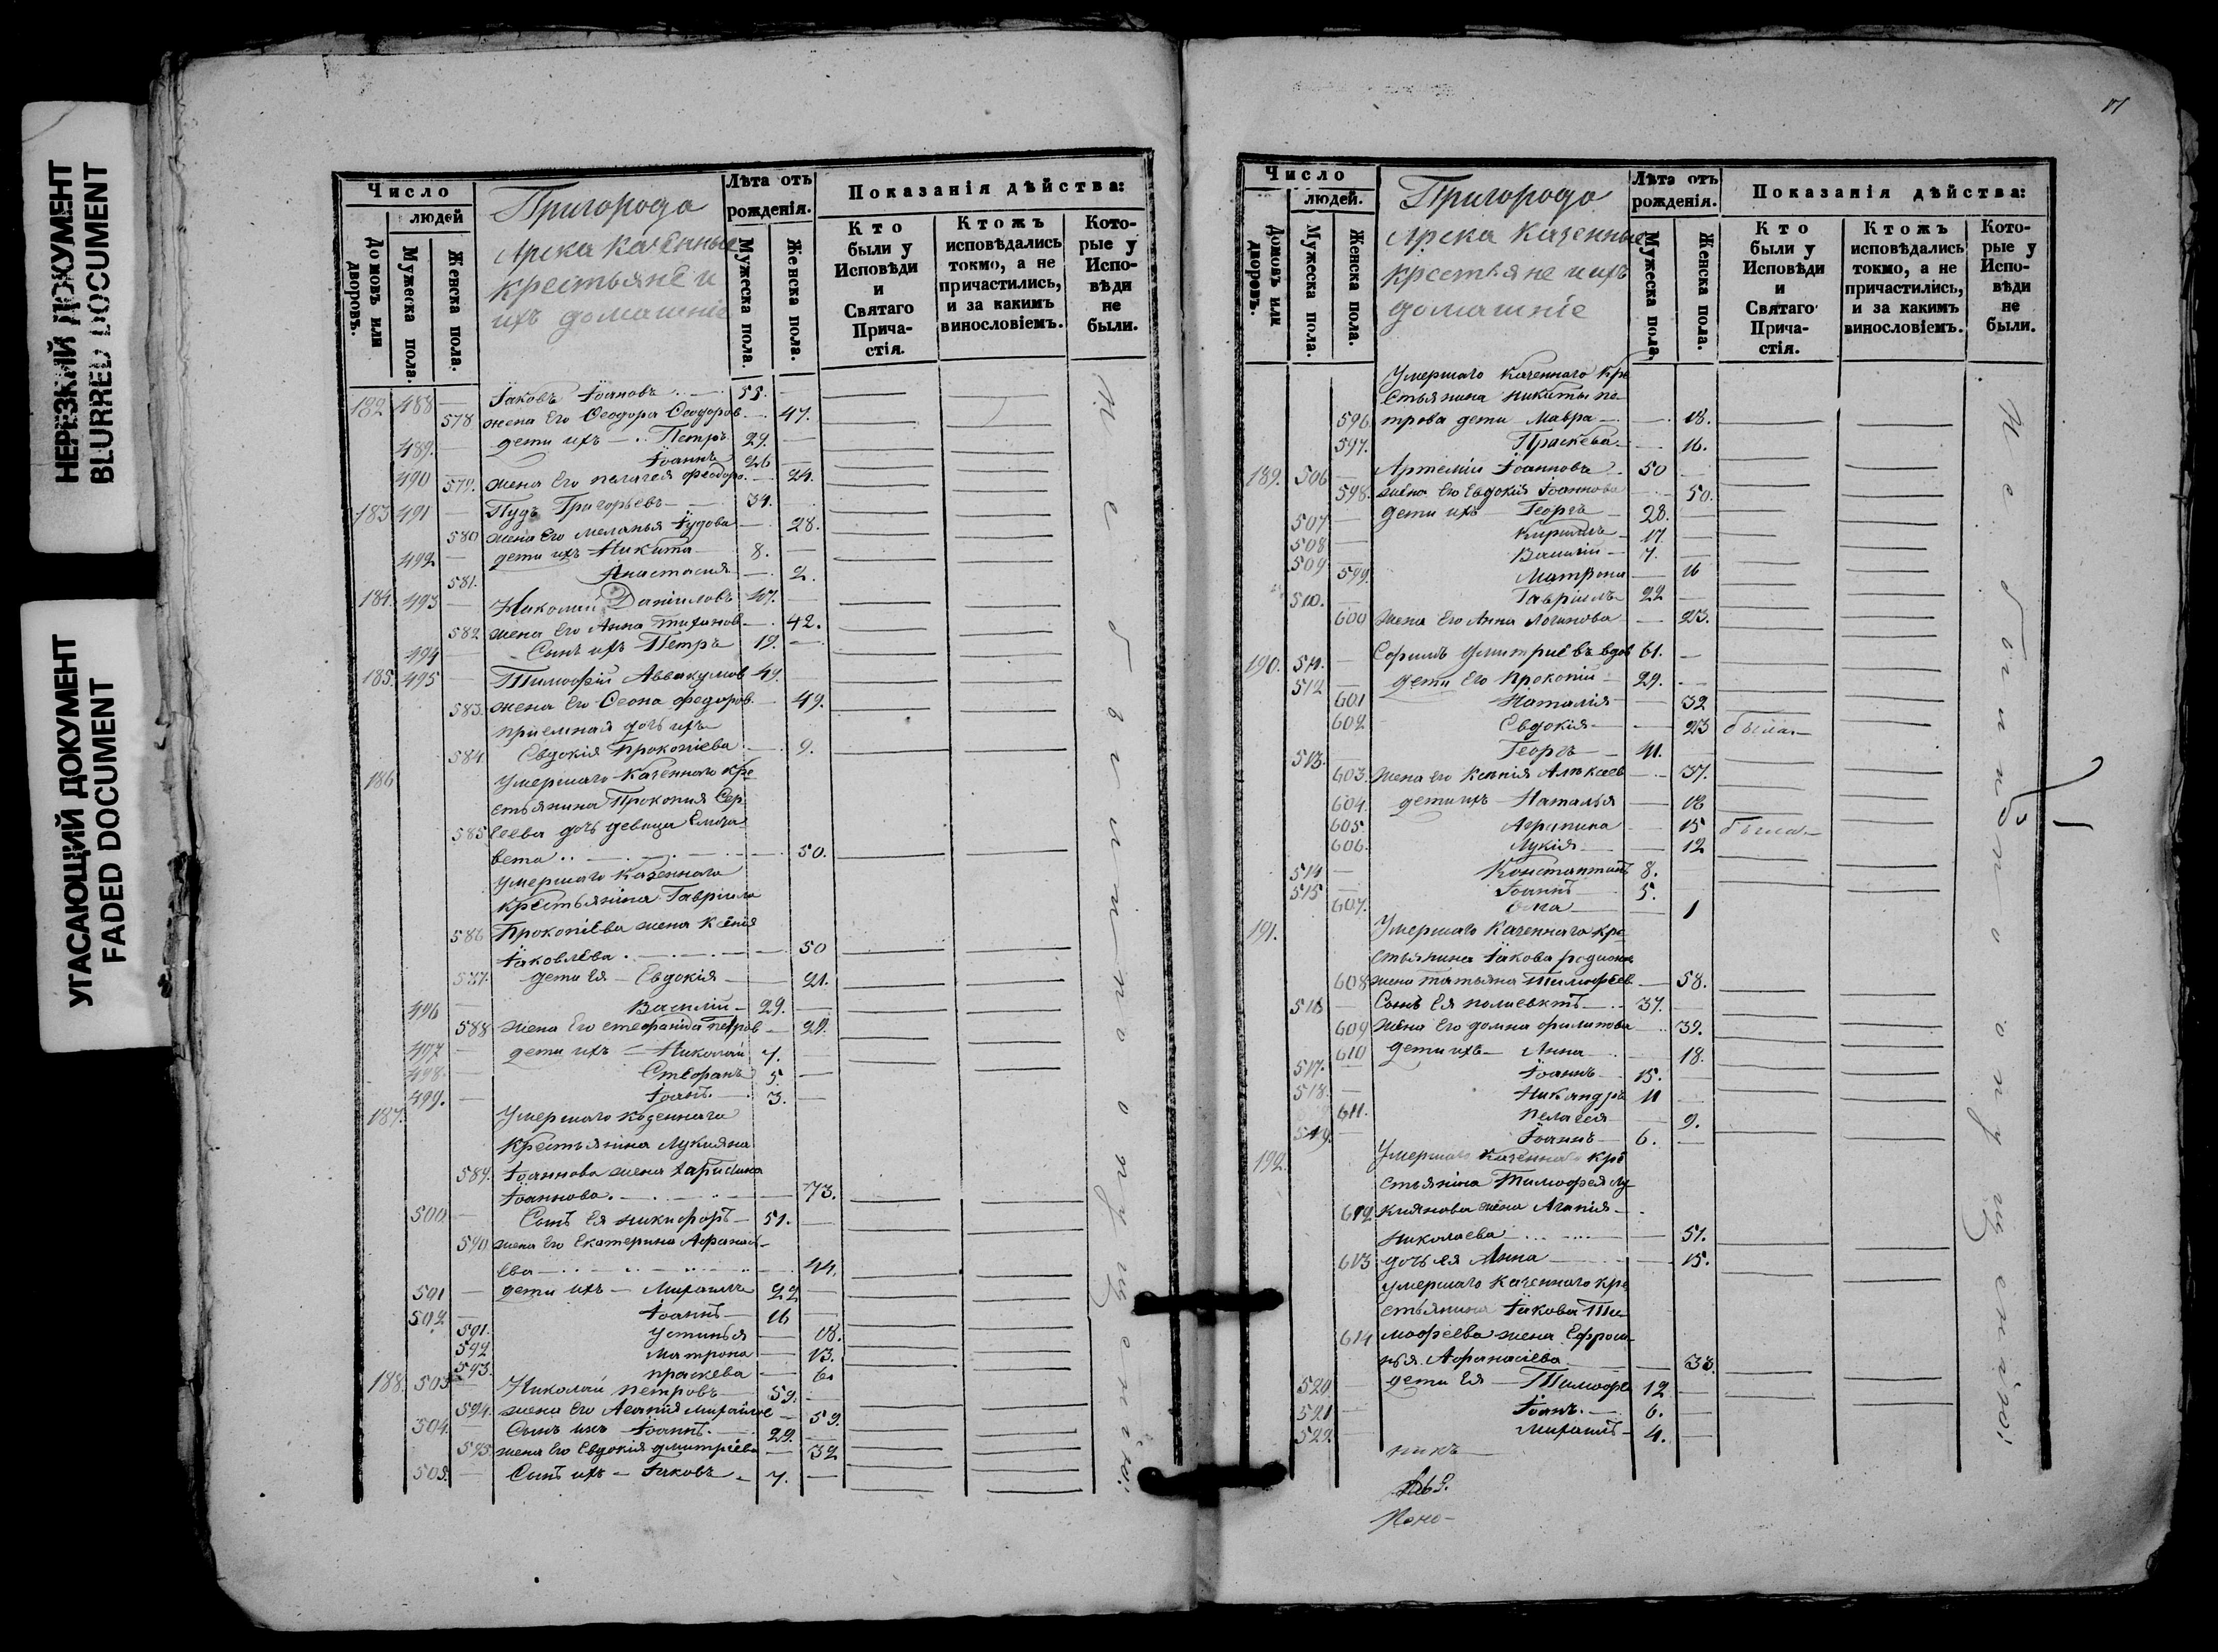 НЕРЕЗКИЙ ДОКУМЕНТ
BLURRED DOCUMENT
УГАСАЮЩИЙ ДОКУМЕНТ
FADED DOCUMENT
Число
людей
Домовъ или дворовъ.
Мужеска пола.
Женска пола.
Пригорода
Арска казенные
крестьяне и
ихъ домашніе
Лѣта отъ
рожденія.
Мужеска пола.
Женска пола.
Показанія дѣйства:
Кто были у Исповѣди и Святаго Причастія.
Ктожъ исповѣдались токмо, а не причастились, и за какимъ винословіемъ.
Которые у Исповѣди не были.
182 488 — Іаковъ Іоановъ — 55. —
578 жена Его Ѳеодора Ѳеодоров — 47.
489. дети ихъ — Петръ 29. —
Іоаннъ 26 —
490 579. жена Его пелагея феодоро. — 24.
183 491 — Пудъ Григорьевъ — 34.
580 жена Его меланья Іудова — 28.
492 — дети ихъ Никита 8. —
581. Анастасия — 2.
184. 493 — Николай Данииловъ 47. —
582 жена Его Анна — 42.
494 — Сынъ ихъ Петръ 19. —
185. 495 — Тимофій Аввакумов 49.
583. жена Его Феона федоров — 49.
приемная дочь ихъ
584 Евдокія Прокопіева — 9.
186 умершаго Казеннаго кре
стьянина Прокопия Сер
585 геева дочь девица Елиза
вета — 50.
умершаго казеннаго
крестьянина Гавріила
586 Прокопіева жена Ксенія
Іаковлева — 50
587. дети Ея — Евдокія — 21.
496 — Василій — 29. —
588 жена Его стефанида петров — 29.
497 — дети ихъ — Николай 7. —
498. — Стефанъ 5. —
499. — Іоанъ. 3. —
187. Умершаго казеннаго
крестьянина Лукияна
589. Іоаннова жена харитина
Іоаннова. — 73.
500 — Сынъ Ея никифоръ — 51. —
590. жена Его Екатерина Афанась-
ева — 44.
501 — дети ихъ — Михаилъ 22 —
502. — Іоаннъ 16
591. Устинья — 18.
592 Матрона — 13.
593. праскева — 6
188. 503 — Николай петровъ 59. —
594. жена Его Агапия михайлов — 59.
504. Сынъ ихъ Іоаннъ. 29. —
595. жена Его Евдокія дмитріева — 32
505. — Сынъ ихъ — Іаковъ 7. —
Не бытіи по опущенію:
17
Число
людей.
Домовъ или дворовъ.
Мужеска пола.
Женска пола.
Пригорода
Арска казенные
крестьяне и ихъ
домашніе
Лѣта отъ
рожденія.
Мужеска пола.
Женска пола.
Показанія дѣйства:
Кто были у Исповѣди и Святаго Причастія.
Ктожъ исповѣдались токмо, а не причастились, и за какимъ винословіемъ.
Которые у Исповѣди не были.
Умершаго казеннаго кре
стьянина никиты пе
596. трова дети — Мавра — 18.
597. Праскева — 16.
189. 506 — Артемій Іоанновъ 50 —
598. жена Его Евдокія Іоаннова — 50.
507 — дети ихъ — Георгъ 28. —
508 — Кирилъ — 17 —
509 — Василій — 7. —
599. Матрона — 16
510. — Гавріилъ 22 —
600 жена Его Анна Логинова — 23.
190. 511. — дмитріевъ вдов 61. —
512 — дети Его Прокопій 29. —
601 Наталія — 32
602 Евдокія — 23 была —
513. Георгъ 41. —
603. жена его Ксенія Алексеев — 37.
604. дети ихъ — Наталья — 18
605. Агрипина — 15 была —
606. Лукія — 12
514 — Константинъ 8. —
515 — Іоаннъ 5. —
607. — 1
191. Умершаго казеннаго кре
стьянина Іакова родиона
608 жена татьяна Тимофеев — 58.
516 — Сынъ Ея полиевктъ 37. —
609 жена Его домна филипова — 39.
610 дети ихъ — Анна — 18.
517. — Іоаннъ 15. —
518. — Никандръ 11 —
611. Пелагея — 9.
519. Іоаннъ 6. —
192. Умершаго казеннаго кре
стьянина Тимофея Лу
612 киянова жена Агапия —
Николаева — 51.
613 дочь ея Анна — 15.
умершаго казеннаго кре
стьянина Іакова Ти
614 мофеева жена Ефроси-
нья Афанасіева — 33.
520. — дети Ея — Тимофе 12 —
521 — Іоанъ. 6. —
522 Михаилъ 4. —
Не бытіи по опущенію